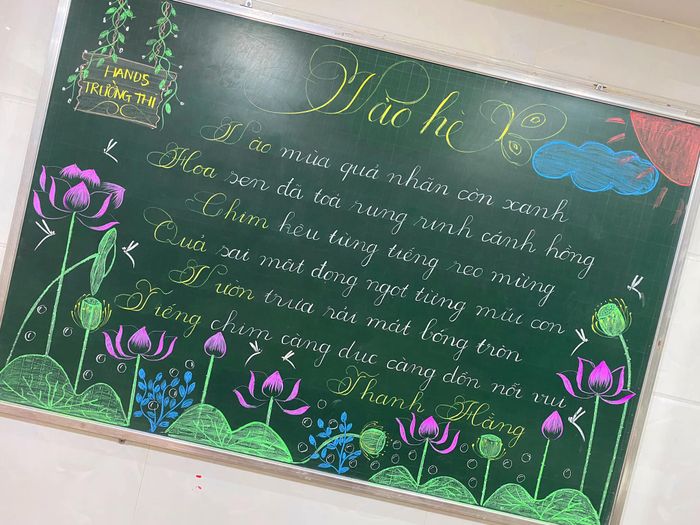 HANDS
TRƯỜNG THI
Vào hè
Vào mùa quả nhãn còn xanh
Hoa sen đã toả rung rinh cánh hồng
Chim kêu từng tiếng reo mừng
Quả sai mật đong ngọt từng múi con
Vườn trưa rải mát bóng tròn
Tiếng chim càng dục càng dồn nỗi vui
Thanh Hằng